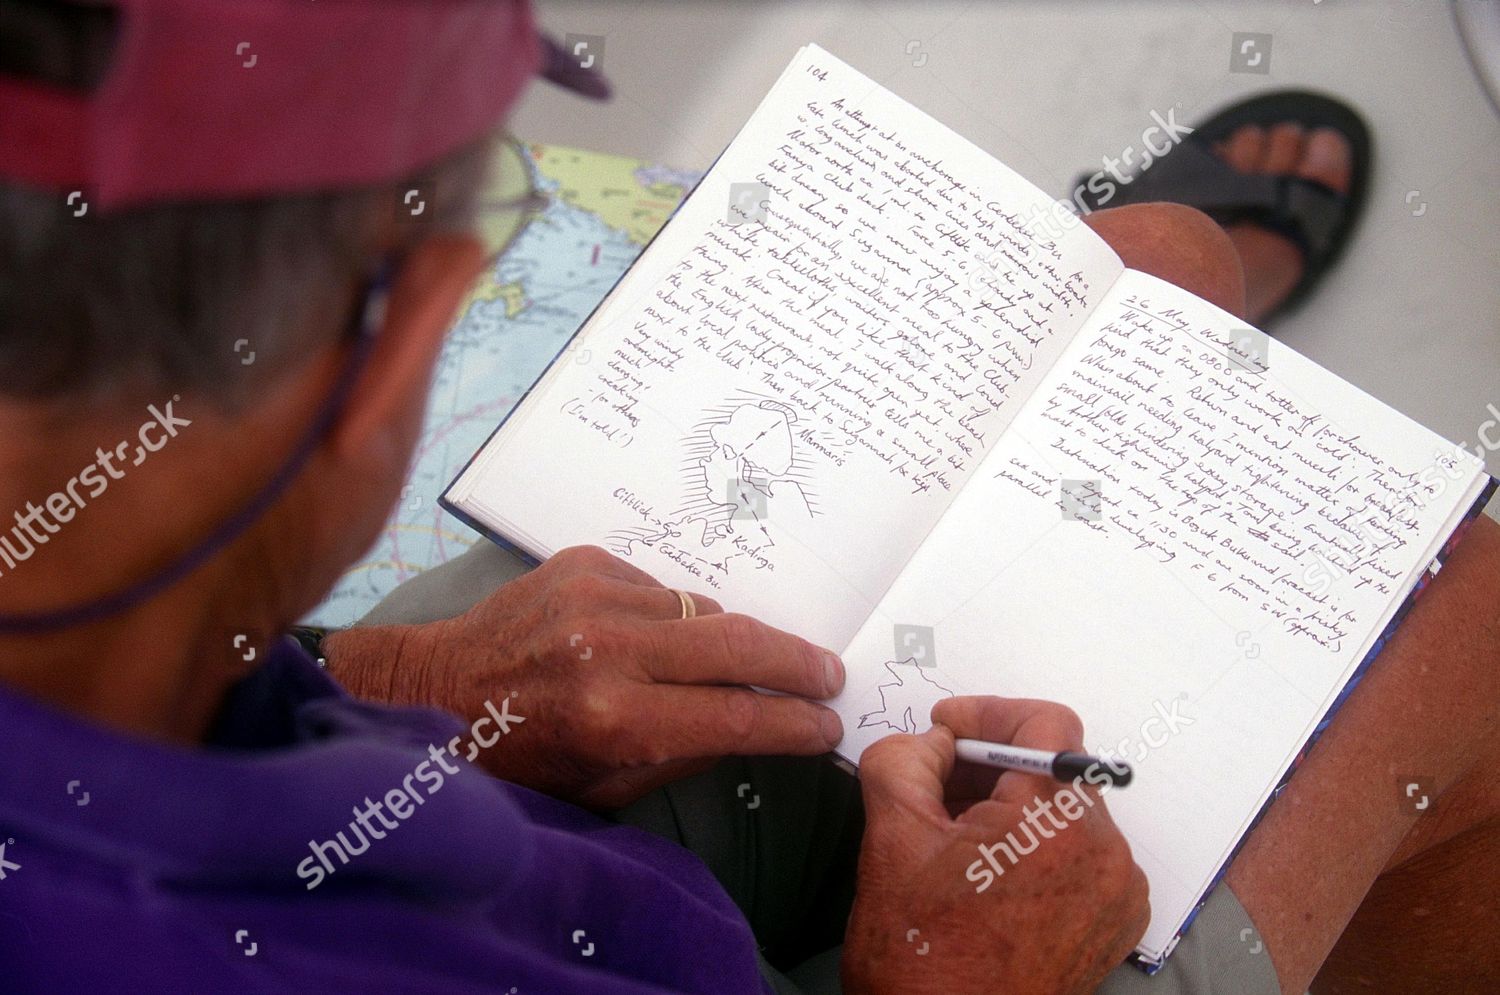 104
An attempt at an anchorage in Gerbekse Bu for a
late lunch was aborted due to high winds, other boats
w. long anchors and shore lines and narrow width.
Motor north ca 1 hr. to Ciftlik and tie up at
Fanya Club dock. Force 5-6, gusty and a
bit dreary so we now enjoy a splendid
lunch aboard Suzanna (approx 5-6 pm)
Consequentially, we are not too hungry when
we repair for an excellent meal to the Club.
White tablecloths, waiters galore and loud
muzak. Great if you like that kind of
thing. After the meal, I walk along the beach
to the next restaurant, not quite open yet, where
the English lady proprietor/partner tells me a bit
about local politics and running a small place
next to "the Club". Then back to Suzannah for kip.
Very windy
overnight
much
clanging!
Speaking
for others
(I'm told!)
Marmaris
Ciftlick →
Kadirga
Gerbekse Bu.
26 May, Wednes
05
Wake up ca 0800 and totter off for shower only to
find that they only work on cold. Therefore
forego same. Return and eat muesli for breakfast.
When about to leave I mention matter of
mainsail needing halyard tightening because of
small folds hindering easy storage. Eventually fixed
by further tightening halyard. Toni being winched up the
mast to check on the top of the sail
Destination today is Bozuk Buku and forecast is for
Depart ca 1130 and are soon in a frisky
sea and wind developing F 6 from SW (approx.)
parallel to coast.
shutterstock